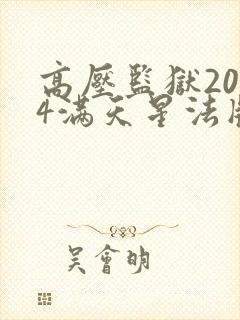 高壓監獄20
4满天星法版
吴會明